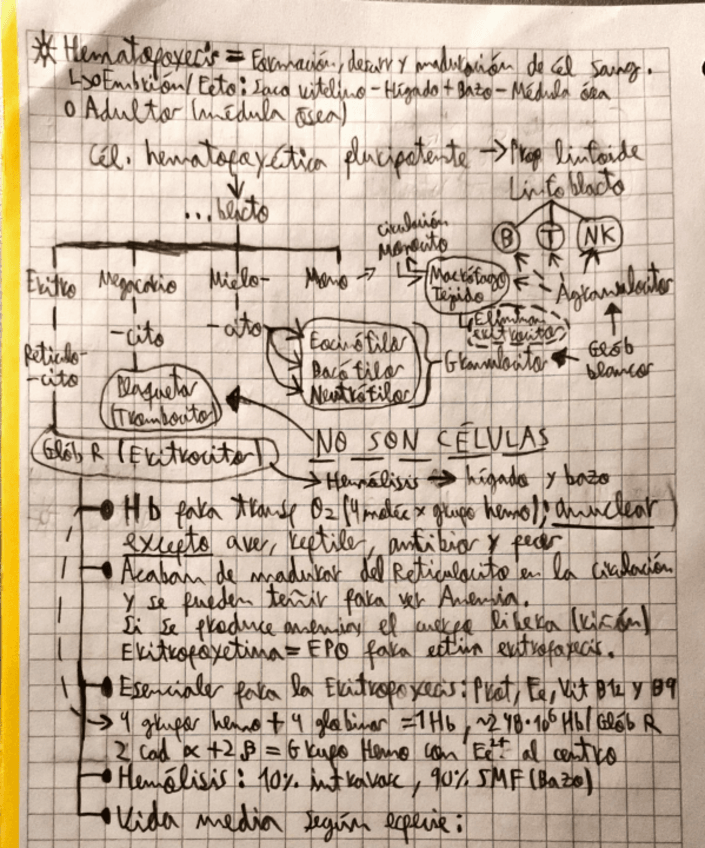 * Hematopoyecis = Formación, desarr y maduración de cél sang.
↳ Embrión/Feto: Saco vitelino - Hígado + Bazo - Médula ósea
o Adultos (médula ósea)
Cél. hematopoyética pluripotente → Prog linfoide
Linfoblasto
...blasto
circulación
Monocito
B T NK
Eritro Megacario Mielo- Mono →
Macrófago
Tejido
Agranulocitos
Eliminan
eritrocitos
-cito -cito
Eosinófilos
Basófilos
Neutrófilos
Granulocitos
Glób
blancos
Reticulo-
-cito
Plaquetas
(Trombocitos)
NO SON CÉLULAS
Glób R (Eritrocitos)
→ Hemólisis → hígado y bazo
Hb para transp O2 (4 moléc x grupo hemo); anuclear
excepto aves, reptiles, anfibios y peces
Acaban de madurar del Reticulocito en la circulación
y se pueden teñir para ver Anemia.
Si se produce anemia, el cuerpo libera (riñón)
Eritropoyetina = EPO para estim eritropoyecis.
Esenciales para la Eritropoyecis: Prot, Fe, Vit B12 y B9
→ 4 grupos hemo + 4 globinas = 1 Hb, ~248·10⁶ Hb/Glób R
2 cad α + 2 β = Grupo Hemo con Fe²⁺ al centro
Hemólisis: 10% intravasc, 90% SMF (Bazo)
Vida media según especie: